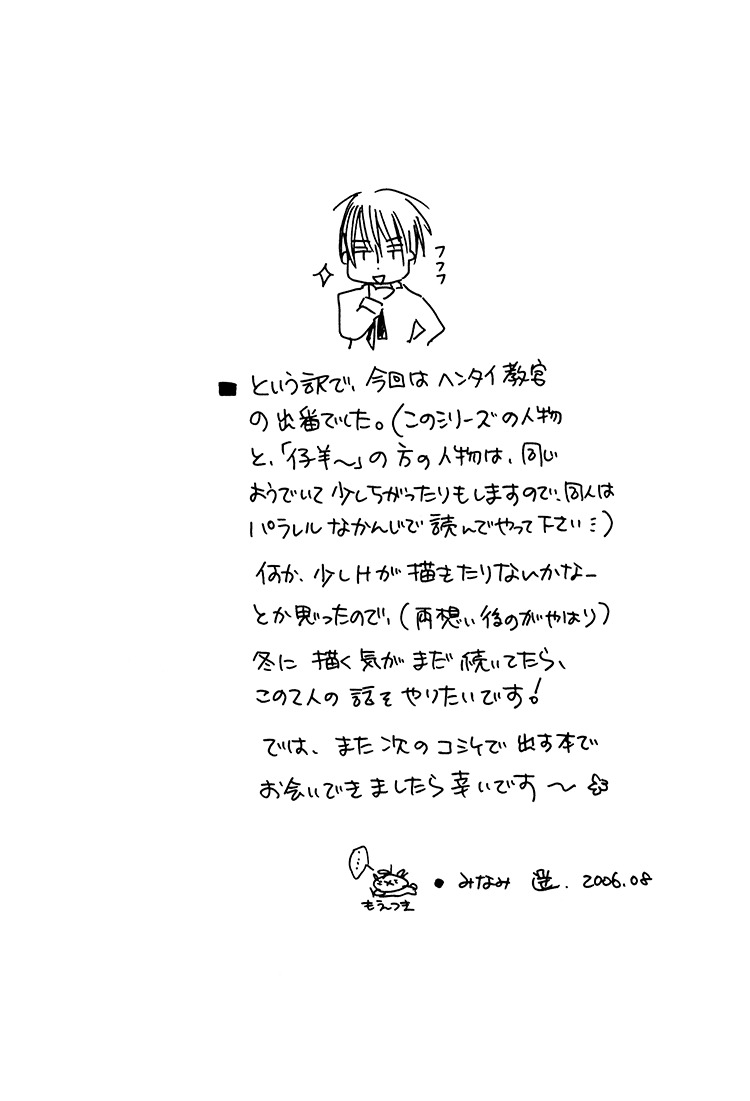 フフフ
■ という訳で、今回は ヘンタイ教官
の出番でした。(このシリーズの人物
と、「仔羊～」の方の人物は、同じ
ようでいて少しちがったりもしますので、同人は
パラレルなかんじで読んでやって下さい…)
何か、少しHが描きたりないかなー
とか思ったので、(両想い後のがやはり)
冬に描く気がまだ続いてたら、
この2人の話をやりたいです!
では、また次のコミケで出す本で
お会いできましたら幸いです～
……
もえつき
● みなみ 遥. 2006.08